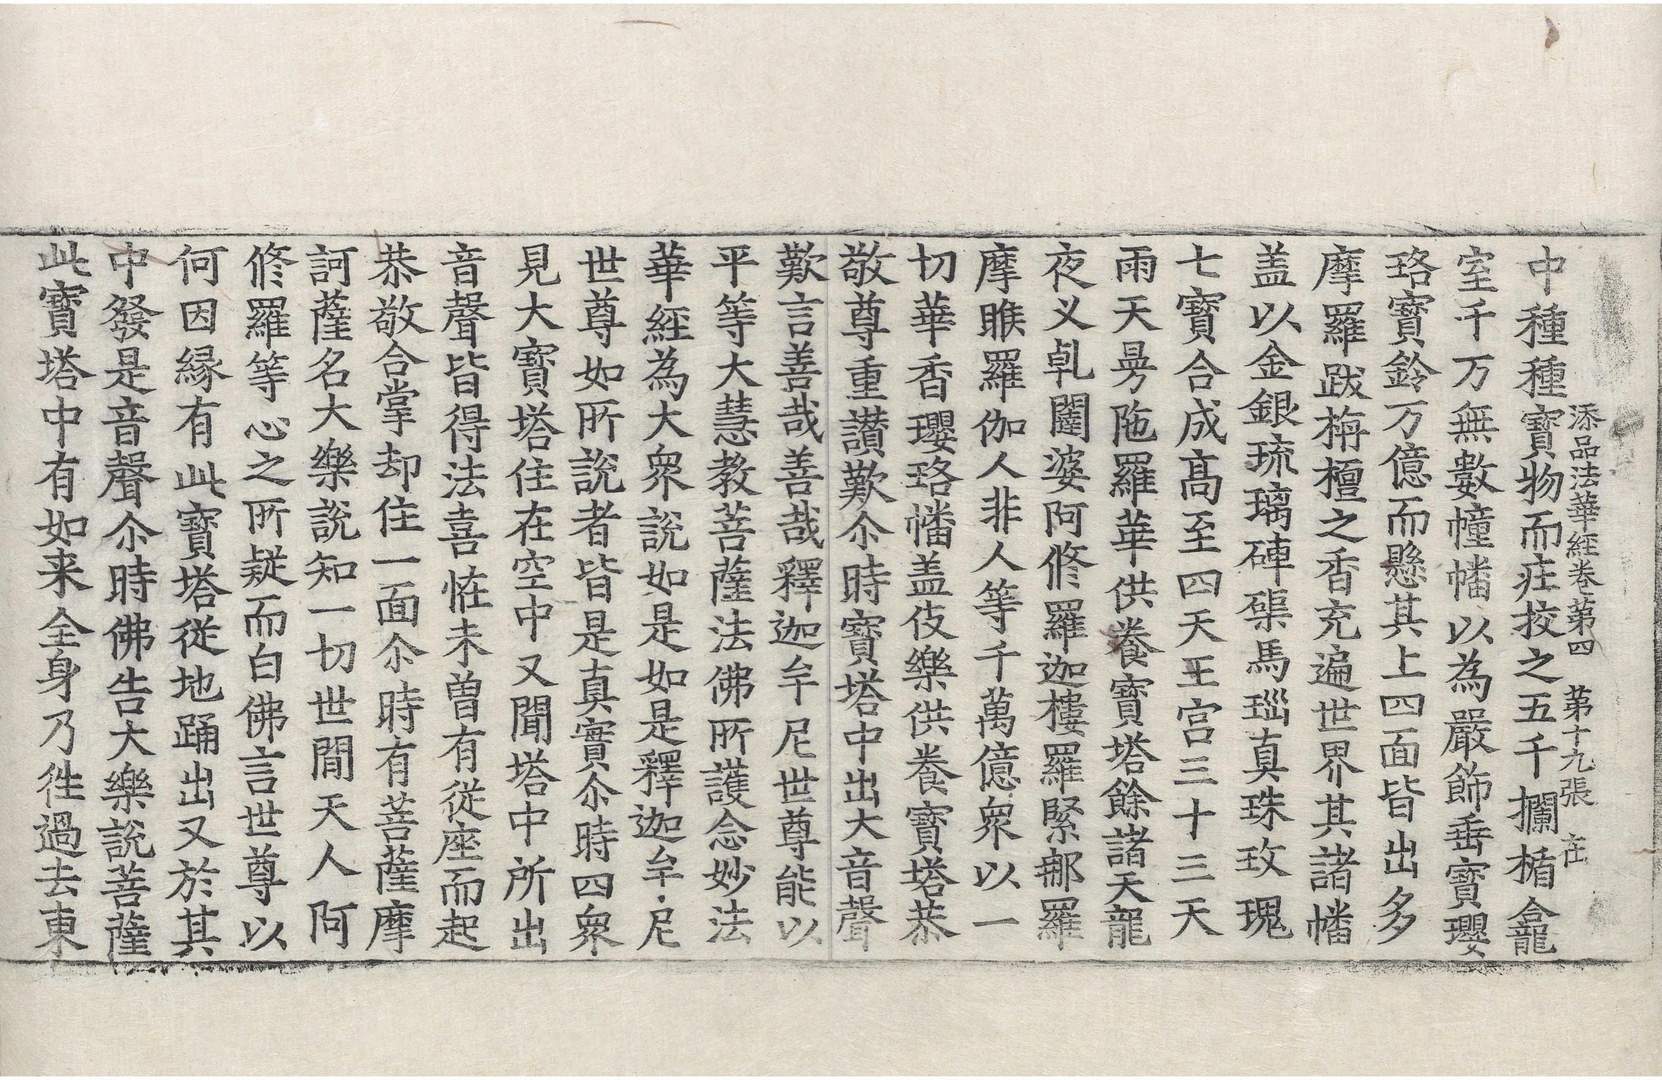 添品法華經卷第四　第十九張　㽵
中種種寶物而㽵挍之五千欄楯龕
室千万無數幢幡以為嚴飾垂寶瓔
珞寶鈴万億而懸其上四面皆出多
摩羅跋栴檀之香充遍世界其諸幡
盖以金銀琉璃硨磲馬瑙真珠玫瑰
七寶合成髙至四天王宫三十三天
雨天曼陁羅華供養寶塔餘諸天龍
夜叉乹闥婆阿修羅迦樓羅緊那羅
摩睺羅伽人非人等千萬億衆以一
切華香瓔珞幡盖伎樂供養寶塔恭
敬尊重讃歎尒時寶塔中出大音聲
歎言善哉善哉釋迦牟尼世尊能以
平等大慧教菩薩法佛所護念妙法
華經為大衆說如是如是釋迦牟尼
世尊如所說者皆是真實尒時四衆
見大寶塔住在空中又聞塔中所出
音聲皆得法喜恠未曽有従座而起
恭敬合掌却住一面尒時有菩薩摩
訶薩名大樂說知一切世間天人阿
修羅等心之所疑而白佛言世尊以
何因縁有此寶塔従地踊出又於其
中發是音聲尒時佛告大樂說菩薩
此寶塔中有如来全身乃徃過去東